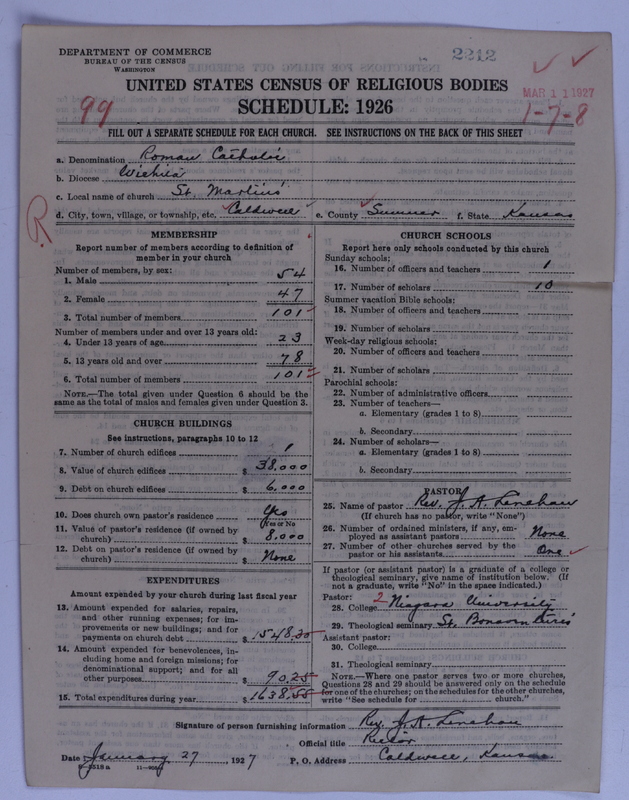 DEPARTMENT OF COMMERCE
BUREAU OF THE CENSUS
WASHINGTON
2212
UNITED STATES CENSUS OF RELIGIOUS BODIES
SCHEDULE: 1926
MAR 11 1927
99
1-7-8
FILL OUT A SEPARATE SCHEDULE FOR EACH CHURCH. SEE INSTRUCTIONS ON THE BACK OF THIS SHEET
a. Denomination Roman Catholic
b. Diocese Wichita
c. Local name of church St. Martins'
d. City, town, village, or township, etc. Caldwell e. County Sumner f. State Kansas
R
MEMBERSHIP
Report number of members according to definition of
member in your church
Number of members, by sex:
1. Male 54
2. Female 47
3. Total number of members 101
Number of members under and over 13 years old:
4. Under 13 years of age 23
5. 13 years old and over 78
6. Total number of members 101
NOTE.—The total given under Question 6 should be the
same as the total of males and females given under Question 3.
CHURCH BUILDINGS
See instructions, paragraphs 10 to 12
7. Number of church edifices 1
8. Value of church edifices $ 38,000
9. Debt on church edifices $ 6,000
10. Does church own pastor's residence Yes
(Yes or No
11. Value of pastor's residence (if owned by
church) $ 8,000
12. Debt on pastor's residence (if owned by
church) $ None
EXPENDITURES
Amount expended by your church during last fiscal year
13. Amount expended for salaries, repairs,
and other running expenses; for im-
provements or new buildings; and for
payments on church debt $ 1548.30
14. Amount expended for benevolences, in-
cluding home and foreign missions; for
denominational support; and for all
other purposes $ 90.25
15. Total expenditures during year $ 1638.55
CHURCH SCHOOLS
Report here only schools conducted by this church
Sunday schools:
16. Number of officers and teachers 1
17. Number of scholars 10
Summer vacation Bible schools:
18. Number of officers and teachers
19. Number of scholars
Week-day religious schools:
20. Number of officers and teachers
21. Number of scholars
Parochial schools:
22. Number of administrative officers
23. Number of teachers—
a. Elementary (grades 1 to 8)
b. Secondary
24. Number of scholars—
a. Elementary (grades 1 to 8)
b. Secondary
PASTOR
25. Name of pastor Rev. J. A. Lenehan
(If church has no pastor, write "None")
26. Number of ordained ministers, if any, em-
ployed as assistant pastors None
27. Number of other churches served by the
pastor or his assistants One
If pastor (or assistant pastor) is a graduate of a college or
theological seminary, give name of institution below. (If
not a graduate, write "No" in the space indicated.)
Pastor:
28. College 2 Niagara University
29. Theological seminary St. Bonaventures
Assistant pastor:
30. College
31. Theological seminary
NOTE.—Where one pastor serves two or more churches,
Questions 28 and 29 should be answered only on the schedule
for one of the churches; on the schedules for the other churches,
write "See schedule for church."
Signature of person furnishing information Rev. J. A. Lenehan
Official title Rector
Date January 27, 1927 P. O. Address Caldwell, Kansas